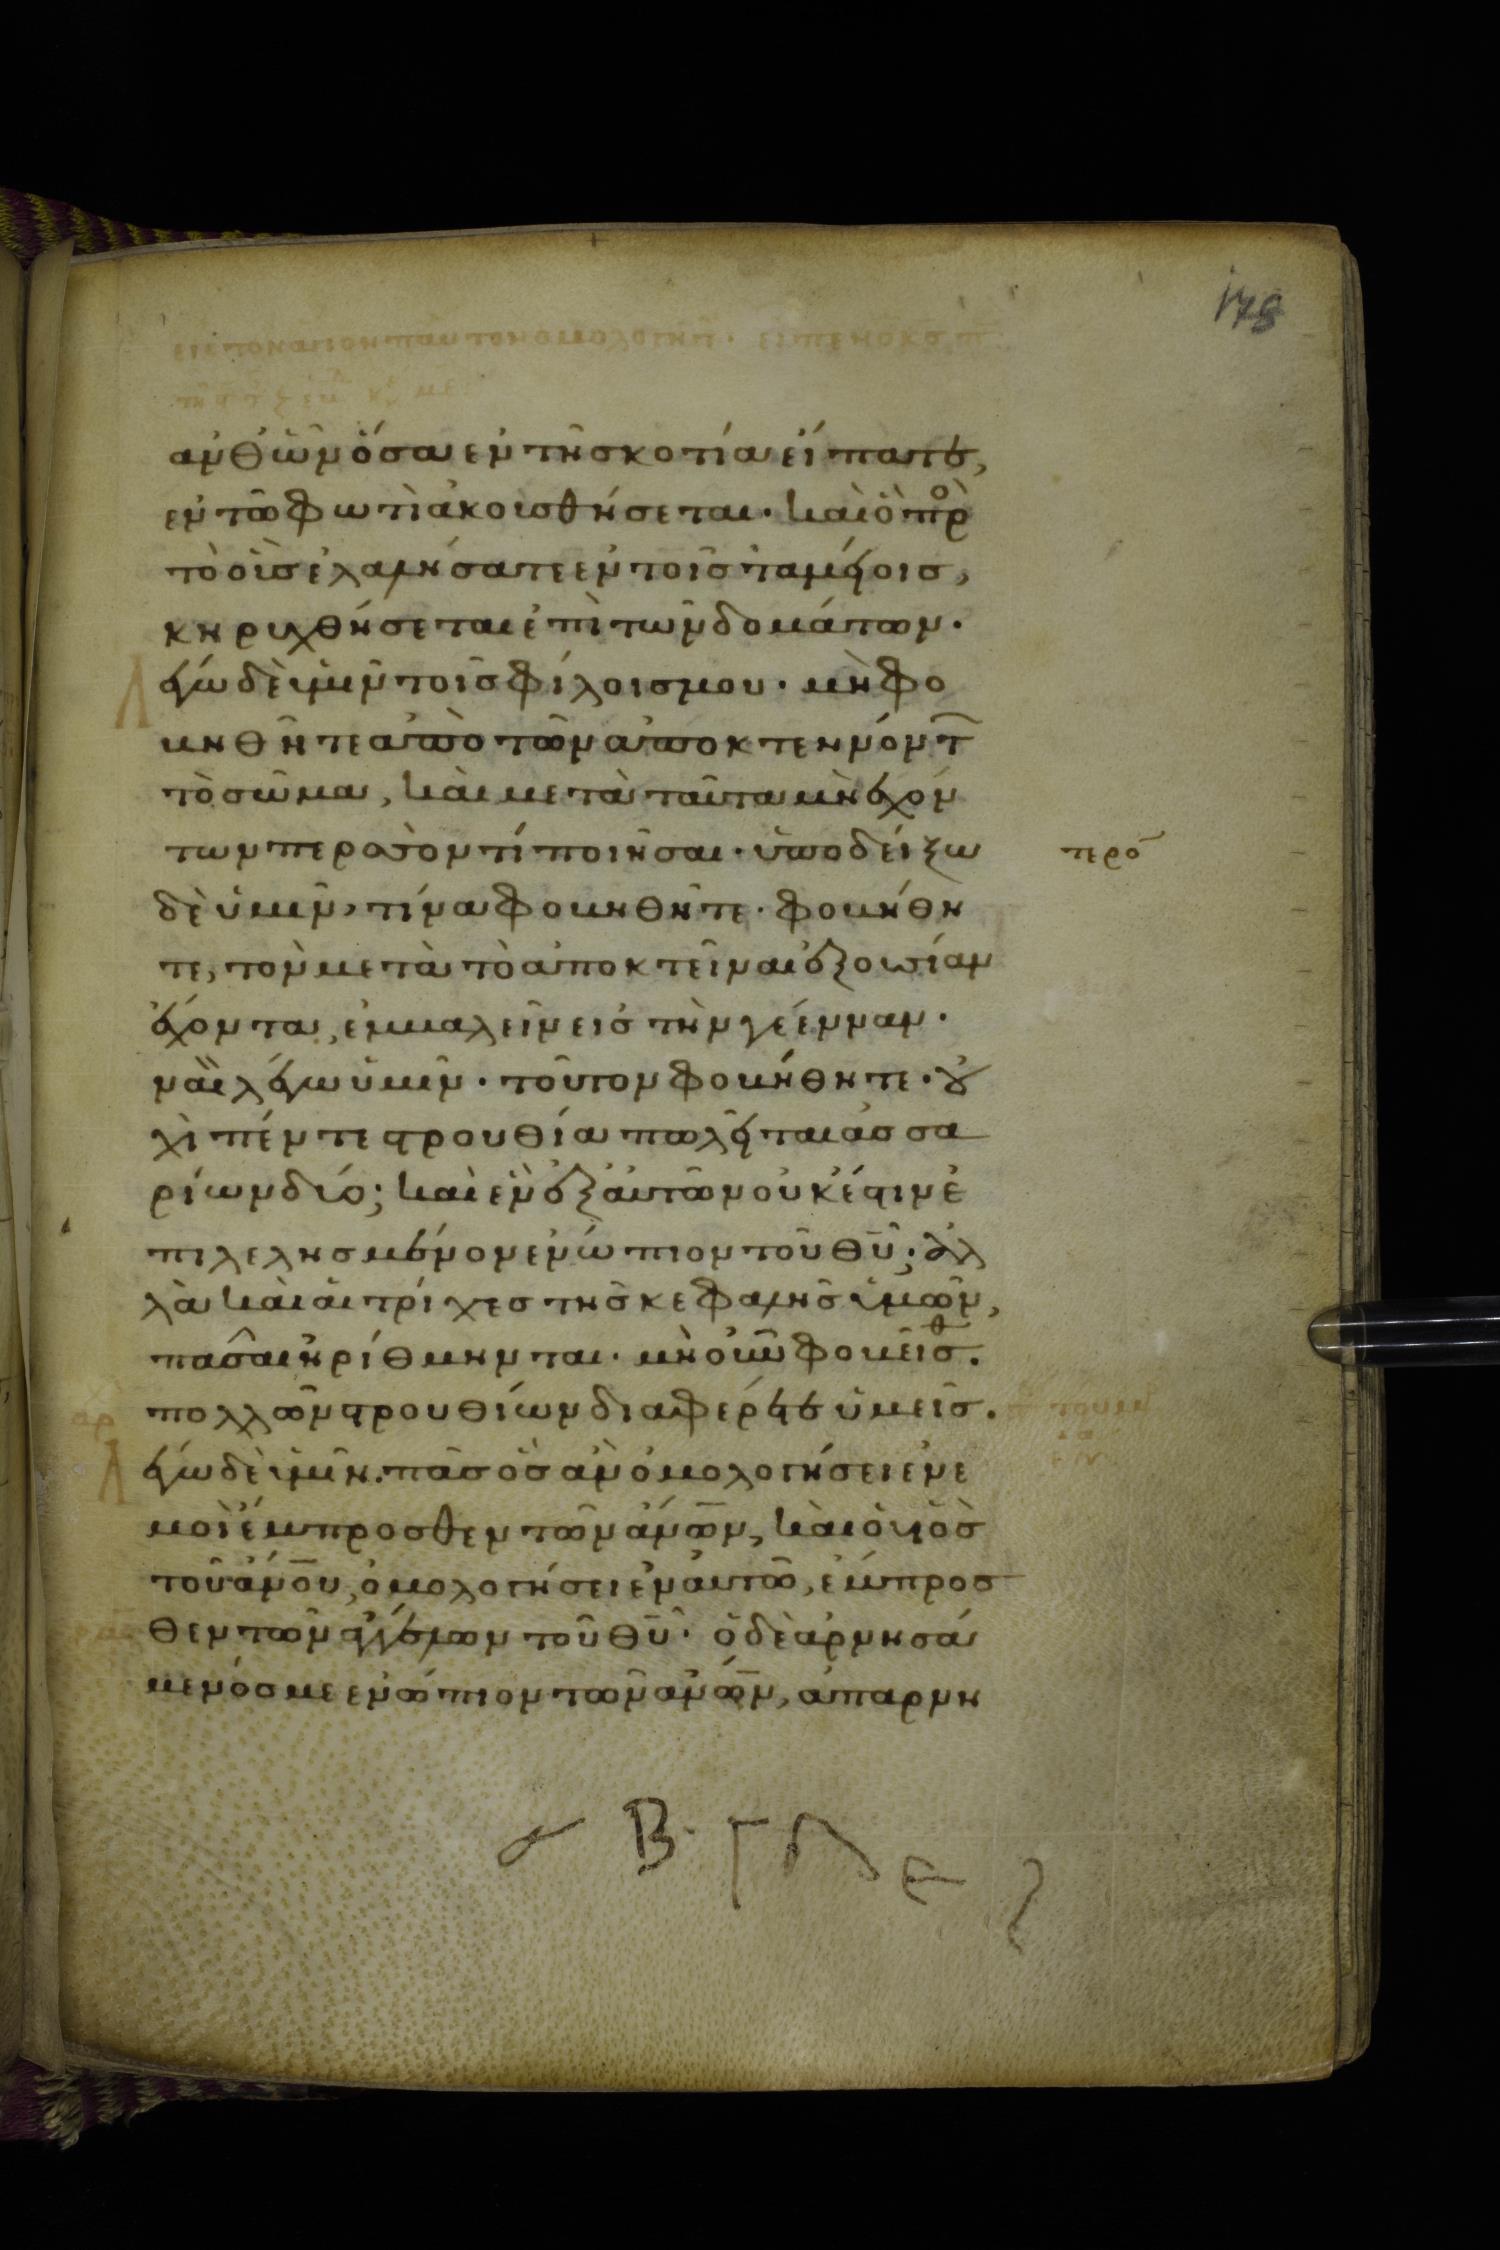 178
ἀνθ ὧν ὅσα ἐν τῆ σκοτία εἴπατε,
ἐν τῶ φωτὶ ἀκουσθήσεται· καὶ ὃ πρὸ
τὸ οὖς ἐλαλήσατε ἐν τοῖς ταμείοις,
κηρυχθήσεται ἐπὶ τῶν δομάτων·
λέγω δὲ ὑμῖν τοῖς φίλοις μου· μὴ φο
βηθῆτε ἀπὸ τῶν ἀποκτενόντ
τὸ σῶμα, καὶ μετὰ ταῦτα μὴ ἐχόν
των περισσὸν τί ποιῆσαι· ὑποδείξω
περσό
δὲ ὑμῖν, τίνα φοβηθῆτε· φοβήθη
τε, τὸν μετὰ τὸ ἀποκτεῖναι ἐξουσίαν
ἔχοντα, ἐμβαλεῖν εἰς τὴν γέενναν·
ναὶ λέγω ὑμῖν· τοῦτον φοβήθητε· οὐ
χὶ πέντε στρουθία πωλεῖται ἀσσα
ρίων δύο; καὶ ἓν ἐξ αὐτῶν οὐκ ἔστιν ἐ
πιλελησμένον ἐνώπιον τοῦ θῦ; ἀλ
λὰ καὶ αἱ τρίχες τῆς κεφαλῆς ὑμῶν,
πᾶσαι ἠρίθμηνται· μὴ οὖν φοβεῖσθ.
πολλῶν στρουθίων διαφέρετε ὑμεῖς.
λέγω δὲ ὑμῖν. πᾶς ὃς ἂν ὁμολογήσει ἐν ἐ
μοὶ ἔμπροσθεν τῶν ἀνων, καὶ ὁ υἱὸς
τοῦ ἀνου, ὁμολογήσει ἐν αὐτῶ, ἔμπροσ
θεν τῶν ἀγγέλων τοῦ θῦ· ὁ δὲ ἀρνησά
μενός με ἐνώπιον τῶν ἀνων, ἀπαρνη
α Β· Γ Δ ε ς